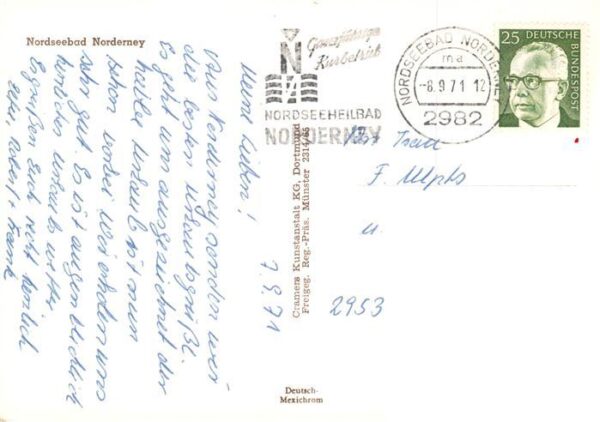 Nordseebad Norderney
Ganzjähriger
Kurbetrieb
N
NORDSEEHEILBAD
NORDERNEY
NORDSEEBAD NORDERNEY
ma
-8.9.71 12
2982
25 DEUTSCHE
BUNDESPOST
Meine Lieben! 7.9.71
Aus Norderney senden wir
die besten Urlaubsgrüße.
Es geht uns ausgezeichnet der
Urlaub ist nun
schon vorbei wir erholen uns
sehr gut. Es ist augenblicklich
herrliches Urlaubswetter.
Es grüßen Euch recht herzlich
Frank
Frau
F.
u.
2953
Cramers Kunstanstalt KG, Dortmund
Freigeg. Reg.-Präs. Münster 2314/65
Deutsch-
Mexichrom